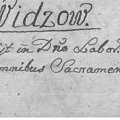 Widzow.
in Dno Labor
omnibus Sacramen